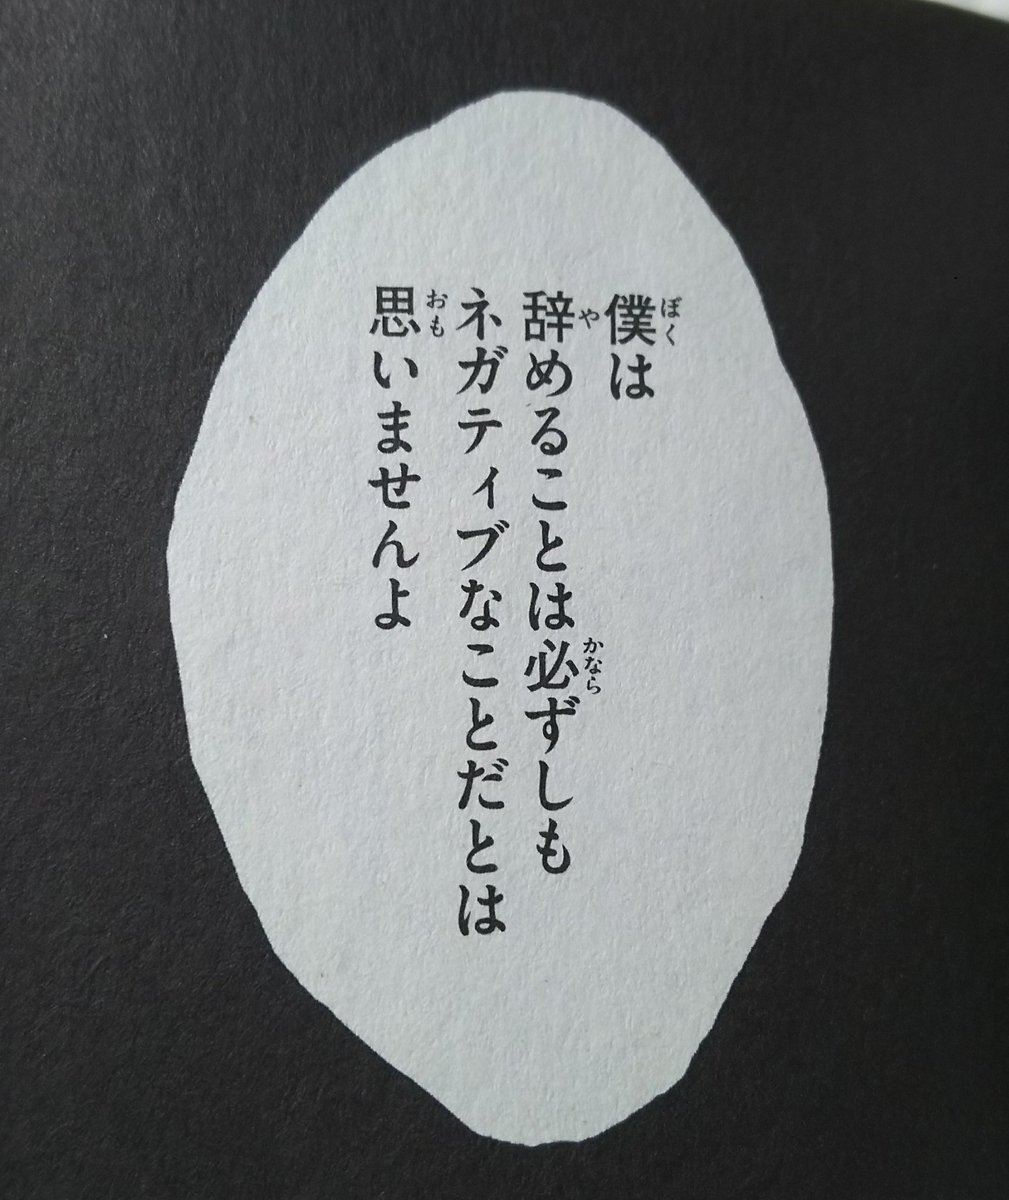 僕は
辞めることは必ずしも
ネガティブなことだとは
思いませんよ